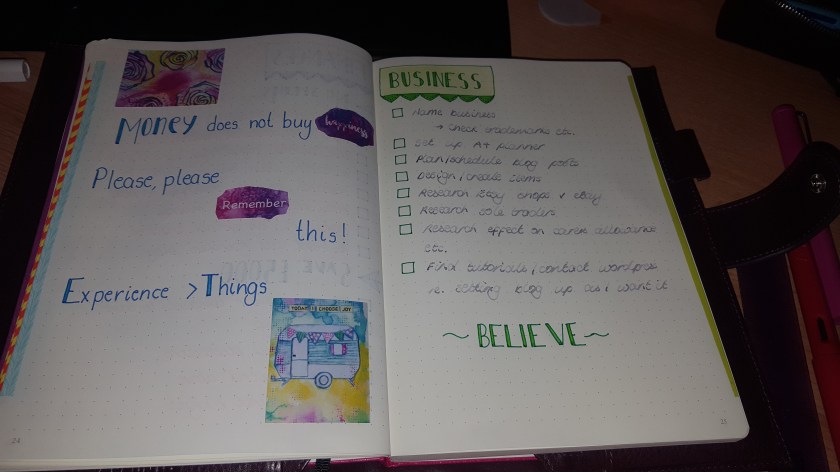 Money does not buy happiness
Please, please
Remember
this!
Experience > Things
TODAY I CHOOSE JOY
24
BUSINESS
Name business
→ check trademarks etc.
Set up A4 planner
Plan/schedule blog posts
Design/create items
Research Etsy shops & eBay
Research sole traders
Research effect on carers allowance
etc.
Find tutorials/contact wordpress
re. setting blog up as I want it
~ BELIEVE ~
25